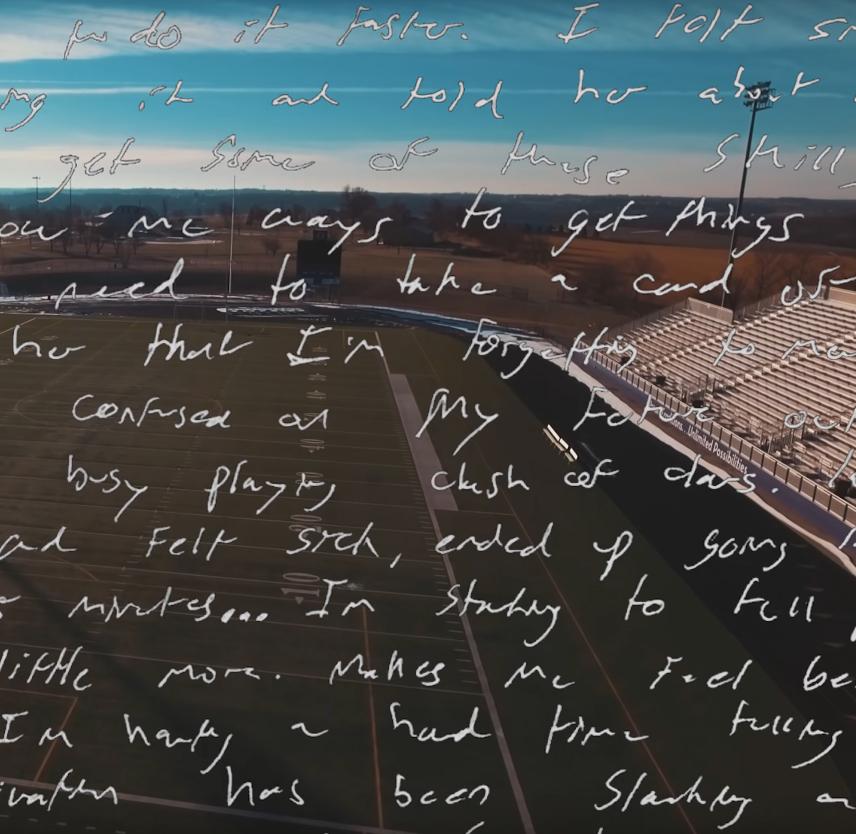 to do it faster. I felt sm
ng it and told her about
get some of these skill
ow me ways to get things
need to take a card of
her that I'm forgetting to ma
confused on my future out
Unlimited Possibilities
busy playing clash of clans.
and felt sick, ended up going
minutes... I'm starting to fall
little more. Makes me feel be
I'm having a hard time telling
ivation has been slacking
10